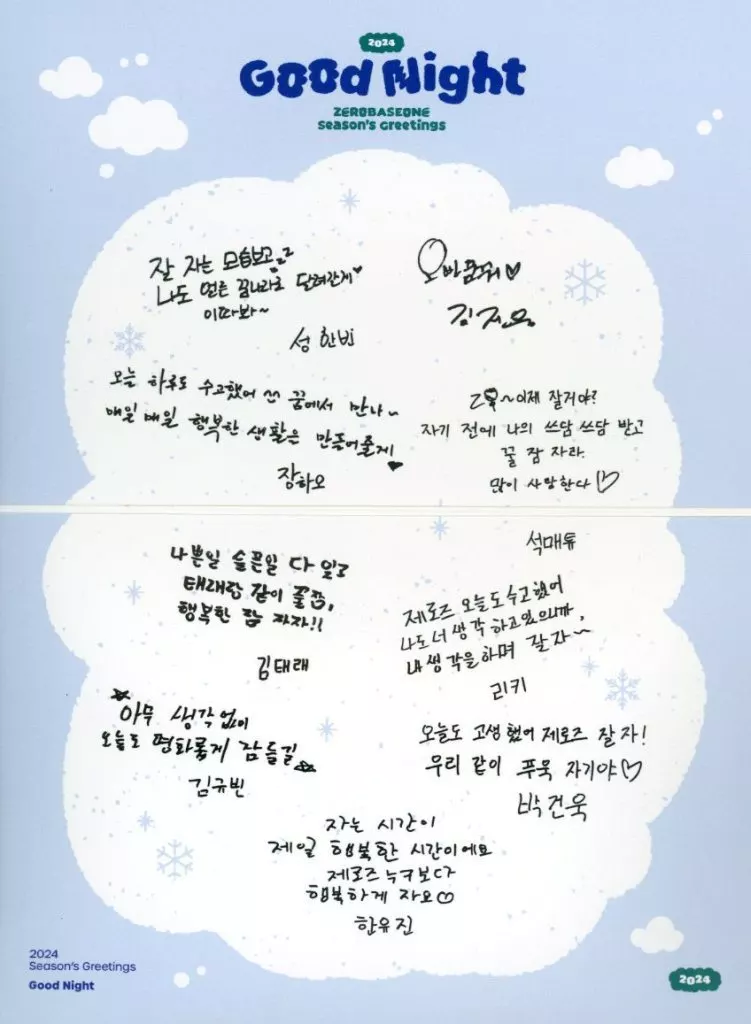 2024
Good Night
ZEROBASEONE
Season's Greetings
잘 자는 모습보고 zzz
나도 얼른 꿈나라로 달려갈게♥
이따봐~
성한빈
오빠꿈꿔♡
김지웅
오늘 하루도 수고했어 쓴 꿈에서 만나~
매일 매일 행복한 생활은 만들어줄게♥
장하오
이제 잘거야?
자기 전에 나의 쓰담 쓰담 받고
꿀 잠 자라.
많이 사랑한다♡
석매튜
나쁜일 슬픈일 다 잊고
태래랑 같이 꿀잠,
행복한 잠 자자!!
김태래
제로즈 오늘도 수고했어
나도 너 생각 하고있으니까,
내 생각을 하며 잘자~
리키
아무 생각 없이
오늘도 평화롭게 잠들길
김규빈
오늘도 고생했어 제로즈 잘 자!
우리 같이 푸욱 자기야♡
박건욱
자는 시간이
제일 행복한 시간이에요
제로즈 누구보다
행복하게 자요♡
한유진
2024
Season's Greetings
Good Night
2024